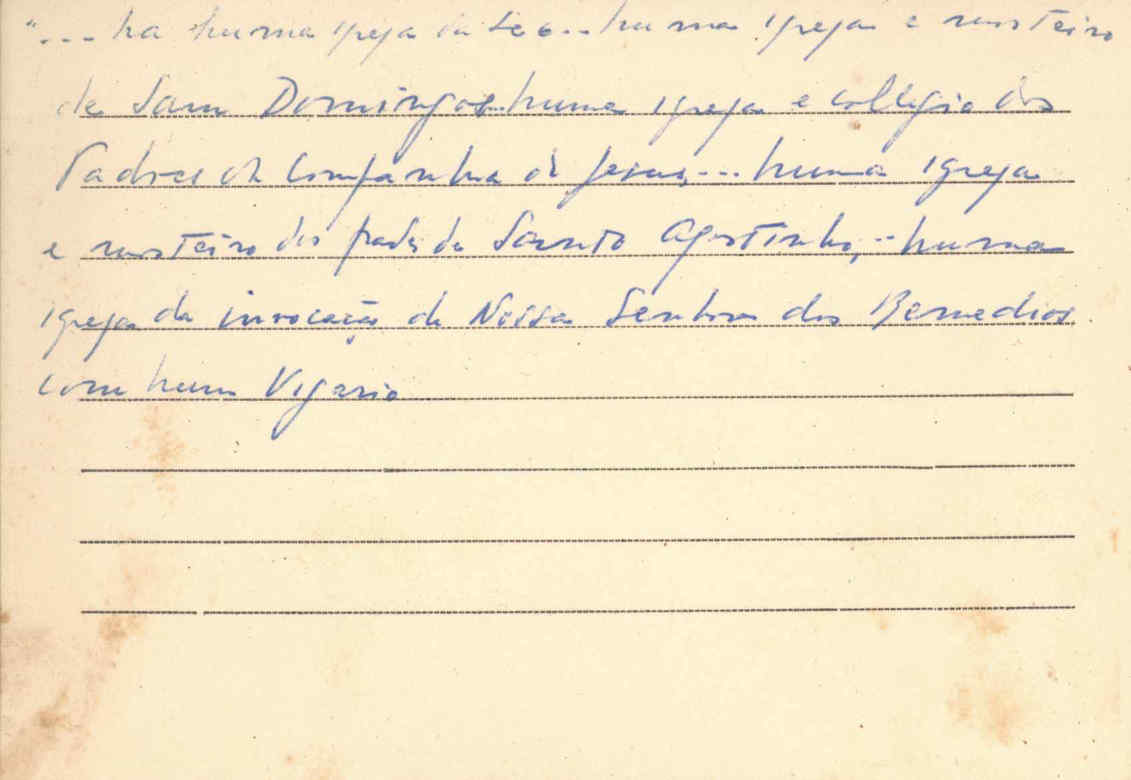 "... ha huma igreja da See... huma igreja e mosteiro
de Sam Domingos... huma igreja e collegio dos
Padres da Companhia de Jesus,... huma igreja
e mosteiro dos frades de Santo Agostinho,... huma
igreja da invocação de Nossa Senhora dos Remedios
com hum Vigario